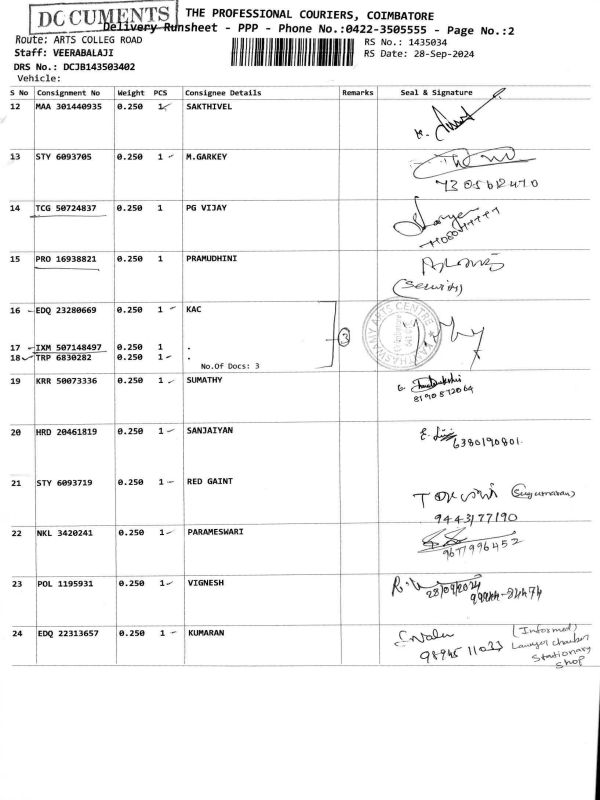 DOCUMENTS
THE PROFESSIONAL COURIERS, COIMBATORE
Delivery Runsheet - PPP - Phone No.:0422-3505555 - Page No.:2
Route: ARTS COLLEG ROAD
RS No.: 1435034
Staff: VEERABALAJI
RS Date: 28-Sep-2024
DRS No.: DCJB143503402
Vehicle:
S No Consignment No Weight PCS Consignee Details Remarks Seal & Signature
12 MAA 301440935 0.250 1 SAKTHIVEL
13 STY 6093705 0.250 1 M.GARKEY
14 TCG 50724837 0.250 1 PG VIJAY
15 PRO 16938821 0.250 1 PRAMUDHINI
(Security)
16 EDQ 23280669 0.250 1 KAC
3
17 IXM 507148497 0.250 1 .
18 TRP 6830282 0.250 1 .
No.Of Docs: 3
19 KRR 50073336 0.250 1 SUMATHY
8190872064
20 HRD 20461819 0.250 1 SANJAIYAN
6380190801
21 STY 6093719 0.250 1 RED GAINT
(Sugumaran)
9443177190
22 NKL 3420241 0.250 1 PARAMESWARI
9677996452
23 POL 1195931 0.250 1 VIGNESH
28/09/2024
24 EDQ 22313657 0.250 1 KUMARAN
98945 11033
(Informed)
Stationary
Shop